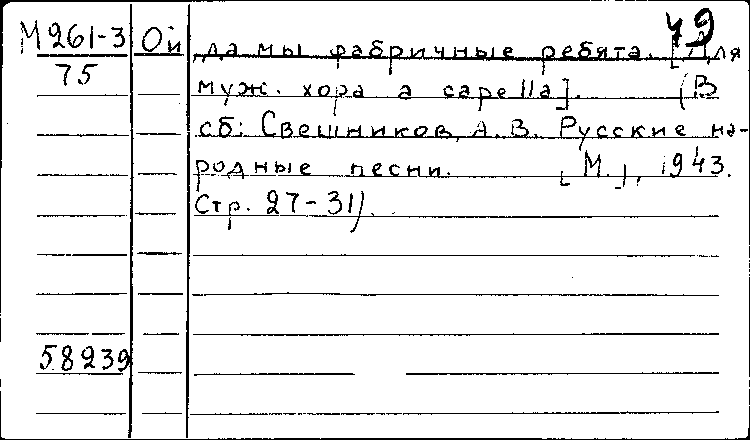 49
М261-3 Ой, да мы фабричные ребята. [Для
75 муж. хора a capella]. (В
сб: Свешников, А.В. Русские на-
родные песни. [М.], 1943.
Стр. 27-31).
58239